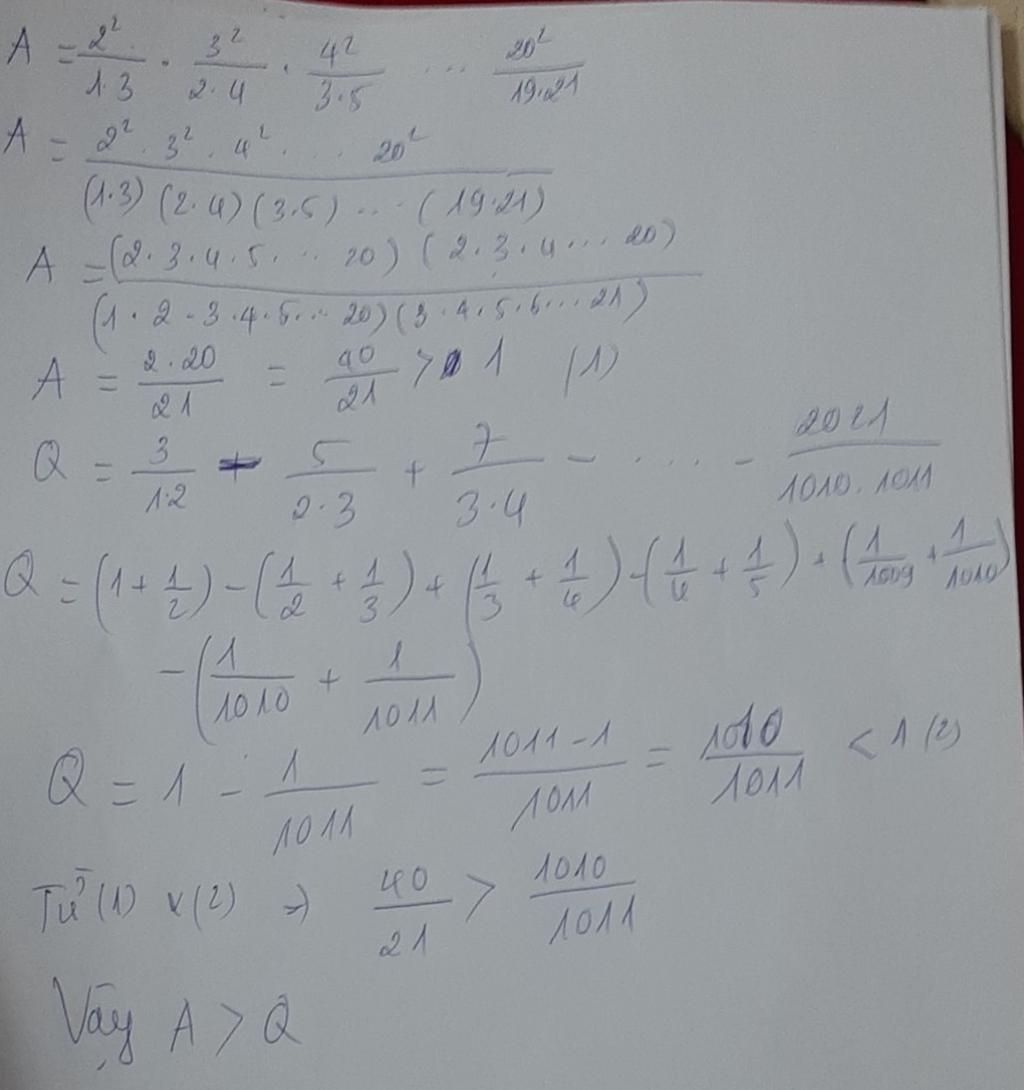 A = 2²/1·3 · 3²/2·4 · 4²/3·5 ... 20²/19·21
A = 2² · 3² · 4² · ... 20²/(1·3)(2·4)(3·5)...(19·21)
A = (2·3·4·5...20)(2·3·4...20)/(1·2·3·4·5...20)(3·4·5·6...21)
A = 2·20/21 = 40/21 > 1 (1)
Q = 3/1·2 - 5/2·3 + 7/3·4 - .... - 2021/1010.1011
Q = (1 + 1/2) - (1/2 + 1/3) + (1/3 + 1/4) - (1/4 + 1/5) + (1/1009 + 1/1010)
- (1/1010 + 1/1011)
Q = 1 - 1/1011 = 1011-1/1011 = 1010/1011 < 1 (2)
Từ (1) v (2) => 40/21 > 1010/1011
Vậy A > Q